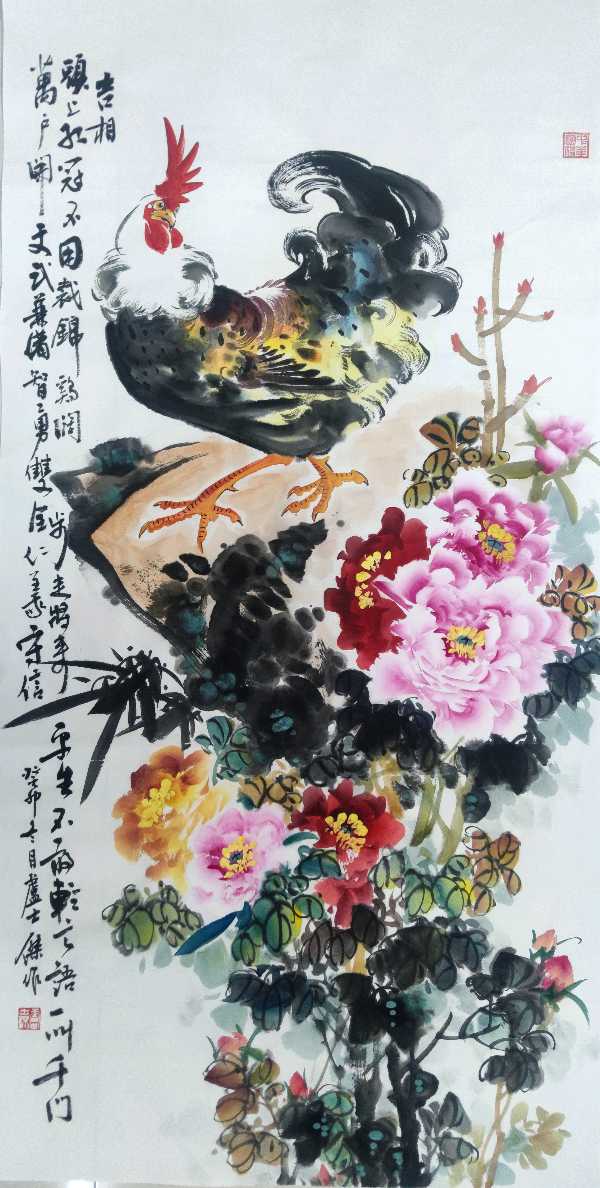 吉相
頭上红冠不用裁錦鷄闊步走將來平生不敢輕言語一叫千门
萬户開文武兼備智勇雙全仁義守信
癸卯冬月盧士傑作